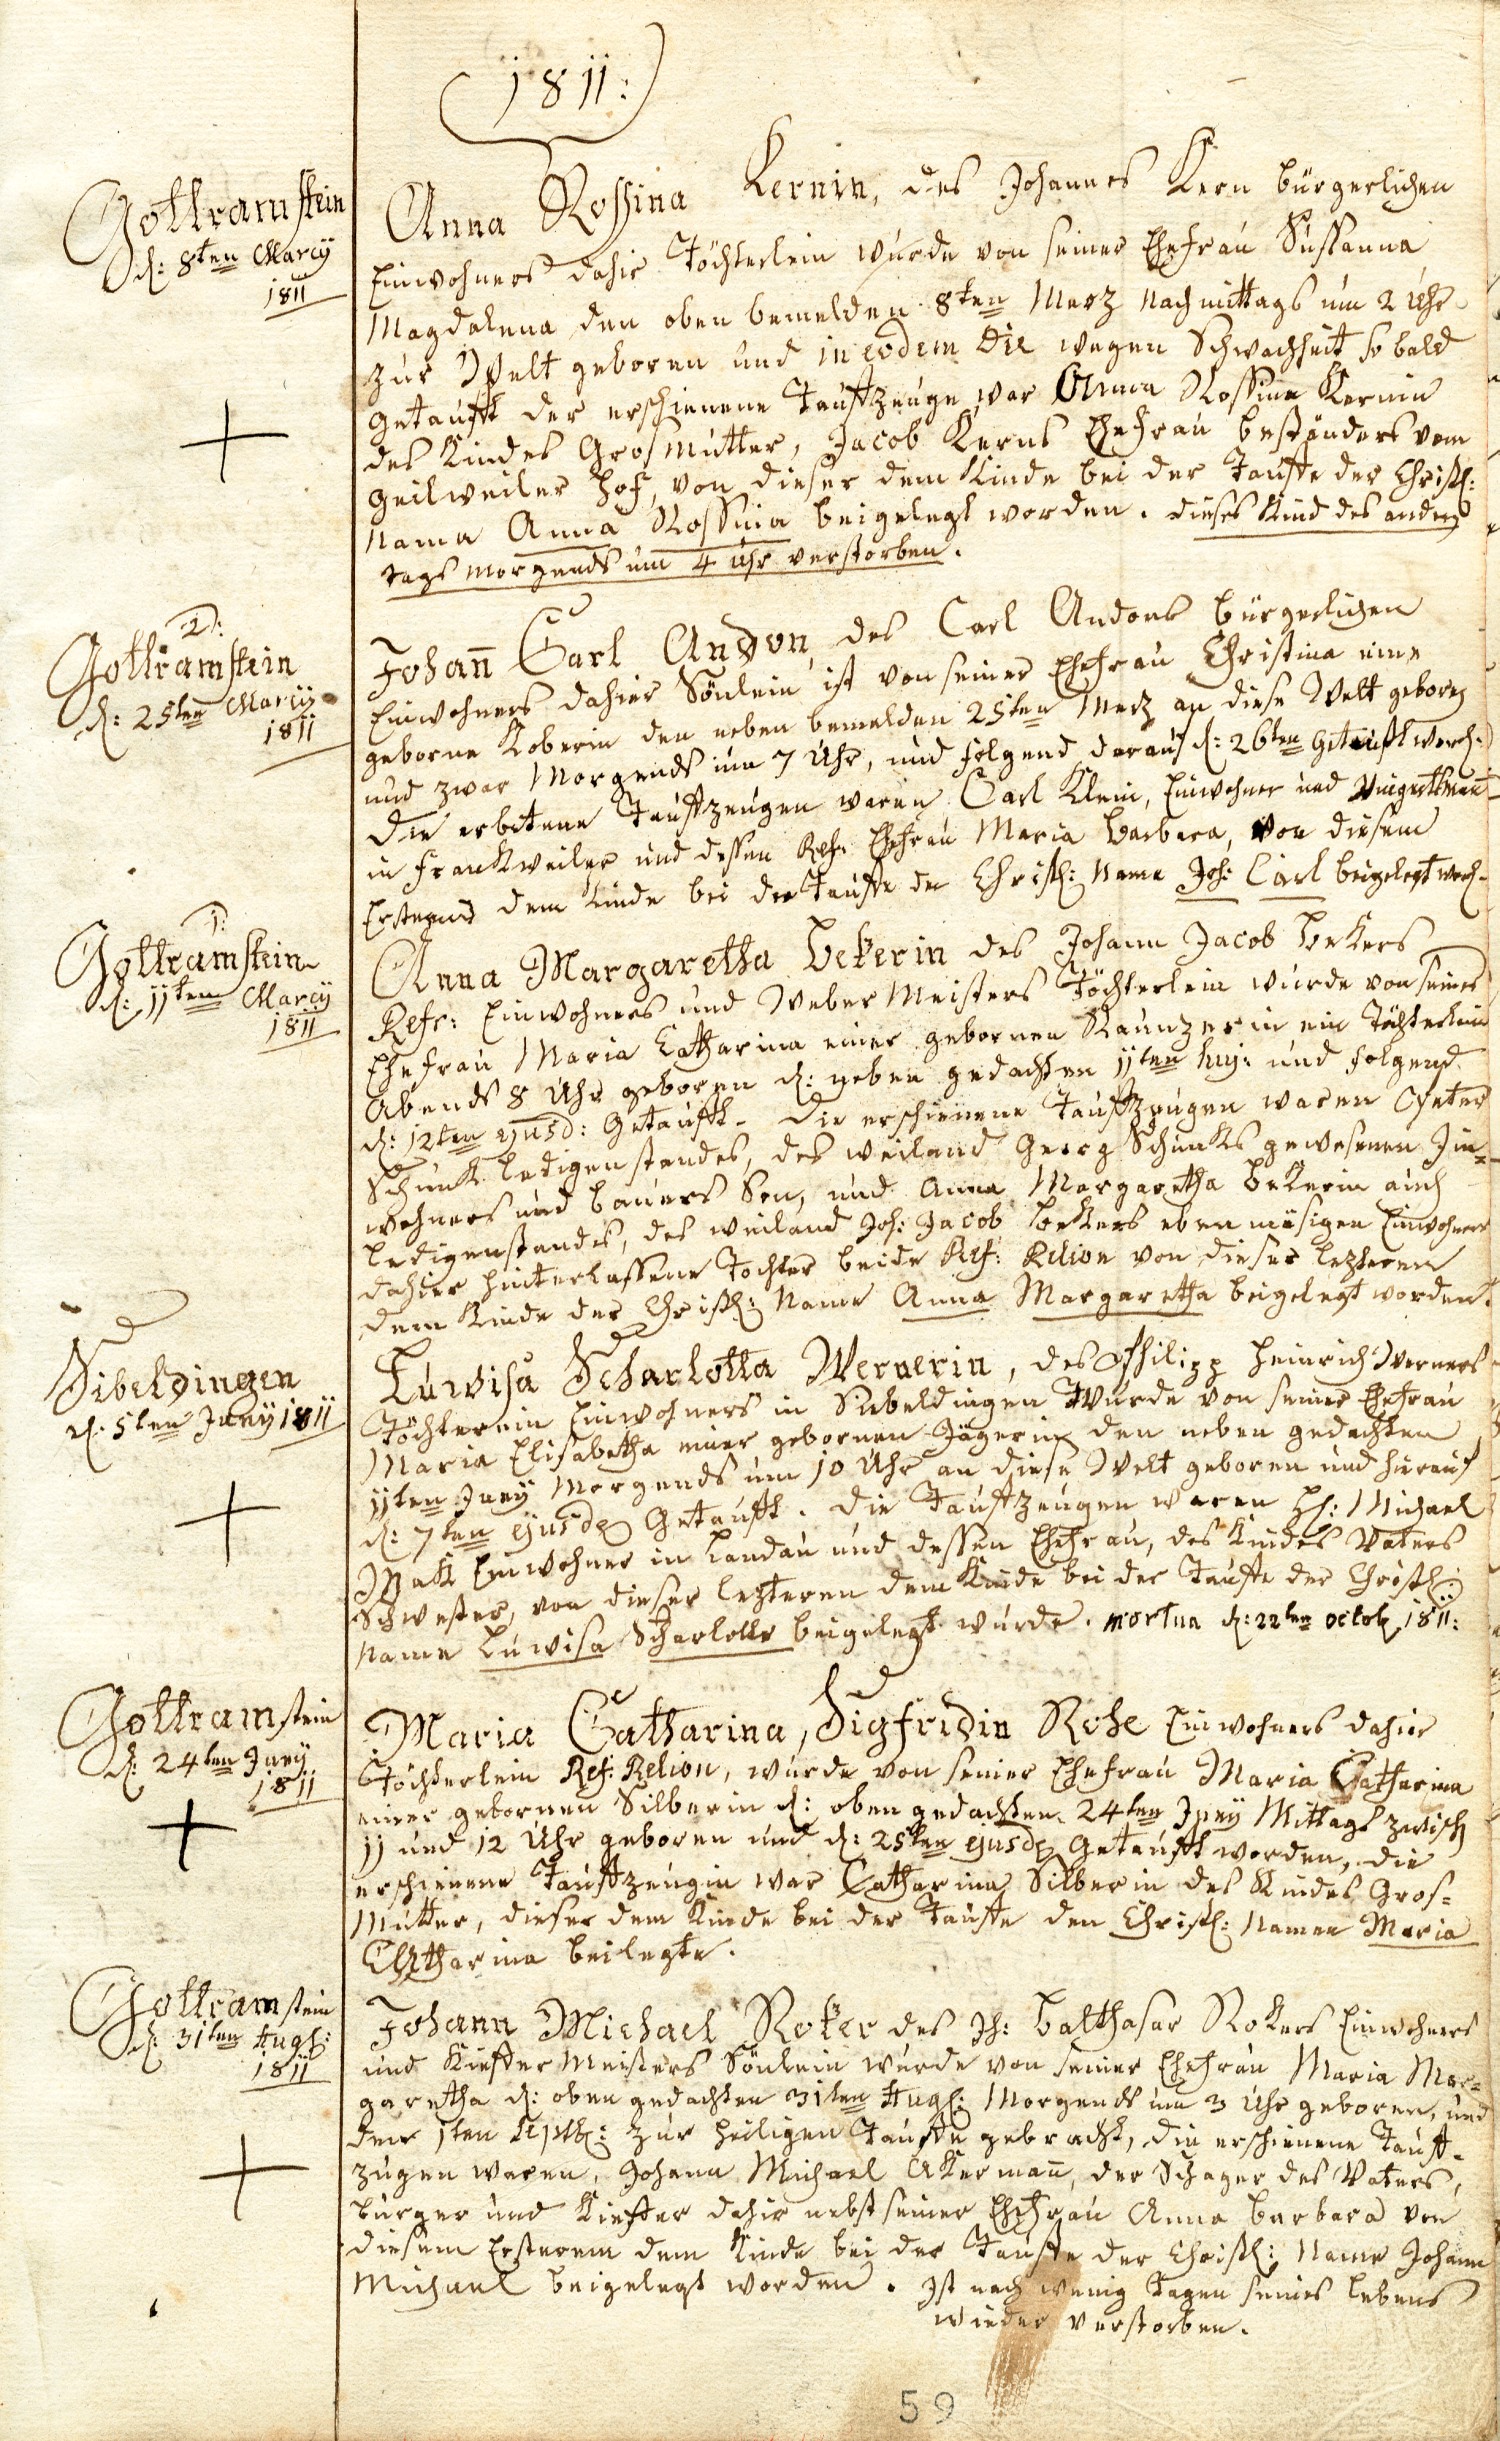 1811:
Gottramstein
d: 8ten Marcÿ
1811
Anna Rossina Kernin, des Johannes Kern bürgerlichen
Einwohners dahir Töchterlein wurde von seiner Ehefrau Sussanna
Magdalena den oben bemelden 8ten Merz Nachmittags um 2 Uhr
zur Welt geboren und in eodem Die wegen Schwachheit so bald
getaufft der erschienene Tauffzeuge war Anna Rossina Kernin
des Kindes Grosmutter, Jacob Kerns Ehefrau beständers vom
geilweiler Hof, von dieser dem Kinde bei der Tauffe der Christl:
nama Anna Rossina beigelegt worden. dieses Kind des andern
tags morgends um 4 uhr verstorben.
2:
Gottramstein
d: 25ten Marcÿ
1811
Johann̄ Carl Andon, des Carl Andons bürgerlichen
Einwohners dahier Sönlein ist von seiner Ehefrau Christina eine
geborne Koberin den neben bemelden 25ten Merz an diese Welt geboren
und zwar Morgends um 7 Uhr, und folgend darauf d: 26ten Getaufft word:
Die erbetene Tauffzeugen waren Carl Klein, Einwohner und
in Frankweiler und dessen Ref: Ehefrau Maria Barbara, von diesem
Ersterem dem Kinde bei der Tauffe der Christl: Name Joh: Carl beigelegt word-
1:
Gottramstein
d: 11ten Marcÿ
1811
Anna Margaretha Bekerin des Johann Jacob Bekers
Refr: Einwohners und Weber Meisters Töchterlein wurde von seiner
Ehefrau Maria Catharina einer gebornen Kaunzerin ein Töchterlein
Abends 8 Uhr geboren d: neben gedachten 11ten huj: und folgend
d: 12ten ejusd: Getaufft. Die erschienene Tauffzeugen waren Peter
Schunk ledigenstandes, des weiland Georg Schunks gewesenen Jn=
wohners und bauers Son, und Anna Margaretha Bekerin auch
ledigenstandes, des weiland Joh: Jacob Bekers ebenmäsigen Einwohners
dahier hinterlassene Tochter beide Ref: Relion von dieser lezteren
dem Kinde der Christl: Name Anna Margaretha beigelegt worden.
Sibeldingen
d: 5ten Junÿ 1811
Luwisa Scharlotta Wernerin, des Philipp Heinrich Werners
Töchterein Einwohners in Siebeldingen Wurde von seiner Ehefrau
Maria Elisabetha einer gebornen Jägerin den neben gedachten
11ten Junÿ Morgends um 10 Uhr an diese Welt geboren und hierauf
d: 7ten ejusde Getaufft. Die Tauffzeugen waren H: Michael
Mak Einwohner in Landau und dessen Ehefrau, des Kindes Vaters
Schwester, von dieser lezteren dem Kinde bei der Tauffe der Christl:
Name Luwisa Scharlotta beigelegt wurde. mortua d: 22ten octob 1811:
Gottramstein
d: 24ten Junÿ
1811
Maria Catharina, Sigfridin Rohe Einwohners dahier
Töchterlein Ref: Relion, wurde von seiner Ehefrau Maria Catharina
einer gebornen Silberin d: oben gedachten 24ten Junÿ Mittags zwisch
11 und 12 Uhr geboren und d: 25ten ejusde Getaufft worden, die
erschienene Tauffzeugin war Catharina Silberin des Kindes Gros=
Mutter, dieser dem Kinde bei der Tauffe den Christl: Namen Maria
Catharina beilegte.
Gottramstein
d: 31ten Augst:
1811
Johann Michael Roker des Jh: Balthasar Rokers Einwohners
und Kieffer Meisters Sönlein wurde von seiner Ehefrau Maria Mar=
garetha d: oben gedachten 31ten Augst: Morgends um 3 Uhr geboren, und
den 1ten Septb: zur heiligen Tauffe gebracht, die erschienene Tauff-
zeugen waren, Johann Michael Akermann̄, der Schager des Vaters,
bürger und Kieffer dahir nebst seiner Ehefrau Anna Barbara von
diesem Ersterem dem Kinde bei der Tauffe der Christl: Name Johann
Michael beigelegt worden. Ist nach wenig Tagen seines Lebens
wieder verstorben.
59